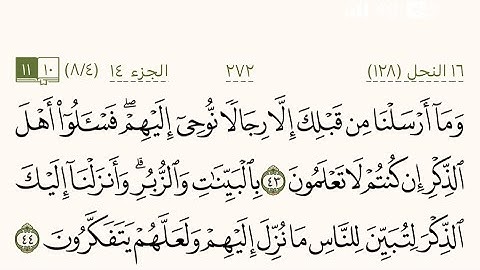 ١٦ النحل (١٢٨) ٢٧٢ الجزء ١٤ (٨/٤) ١٠ ١١
وَمَآ أَرْسَلْنَا مِن قَبْلِكَ إِلَّا رِجَالًا نُّوحِىٓ إِلَيْهِمْ ۖ فَسْـَٔلُوٓا۟ أَهْلَ
ٱلذِّكْرِ إِن كُنتُمْ لَا تَعْلَمُونَ ٤٣ بِٱلْبَيِّنَـٰتِ وَٱلزُّبُرِ ۗ وَأَنزَلْنَآ إِلَيْكَ
ٱلذِّكْرَ لِتُبَيِّنَ لِلنَّاسِ مَا نُزِّلَ إِلَيْهِمْ وَلَعَلَّهُمْ يَتَفَكَّرُونَ ٤٤